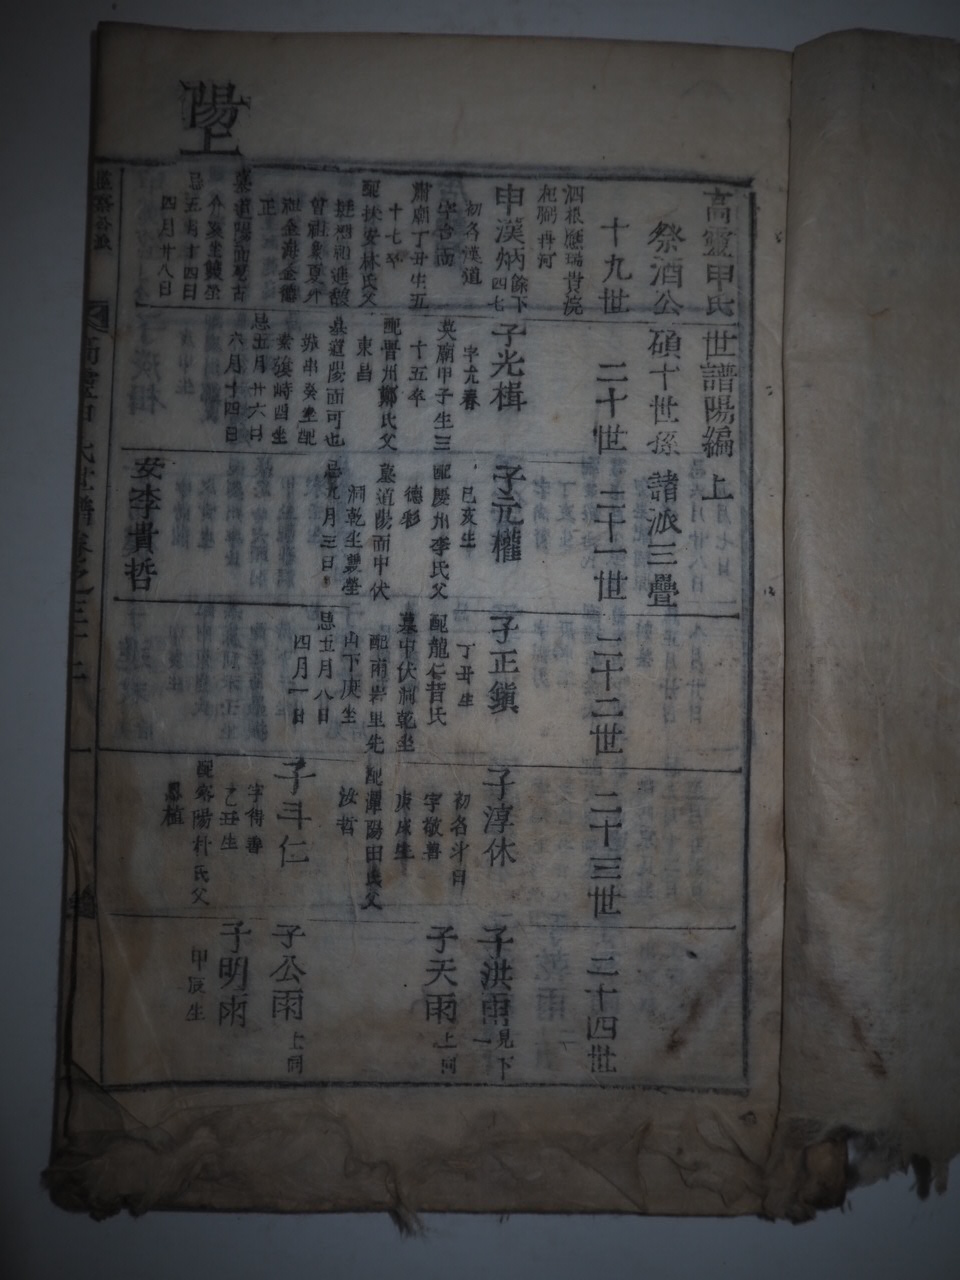 陽
上
高靈申氏世譜陽編 上
祭酒公碩十世孫諸派三疊
十九世
二十世
二十一世
二十二世
二十三世
二十四世
泗根應瑞貴浣
申漢炳餘下四七
初名漢道
肅廟丁丑生五
十七卒
配扶安林氏父
曾祖集夏外
祖金海金
正
墓道陽面
忌五月十四日
四月廿八日
子光楫
字允春
英廟甲子生三
十五卒
配晋州鄭氏父
東昌
墓道陽面可也
忌五月廿六日
六月十四日
子元權
己亥生
配慶州李氏父
德彩
墓道陽面中伏
洞乾坐雙塋
忌九月三日
女李貴哲
子正鎭
丁丑生
配龍仁昔氏
墓中伏洞乾坐
配南岩里先
山下庚坐
忌五月八日
四月一日
子淳休
初名斗日
字敬善
庚戌生
配潭陽田氏父
汝哲
子斗仁
字得春
乙丑生
配密陽朴氏父
恩植
子洪雨見下一
子天雨上同
子公雨上同
子明雨
甲辰生